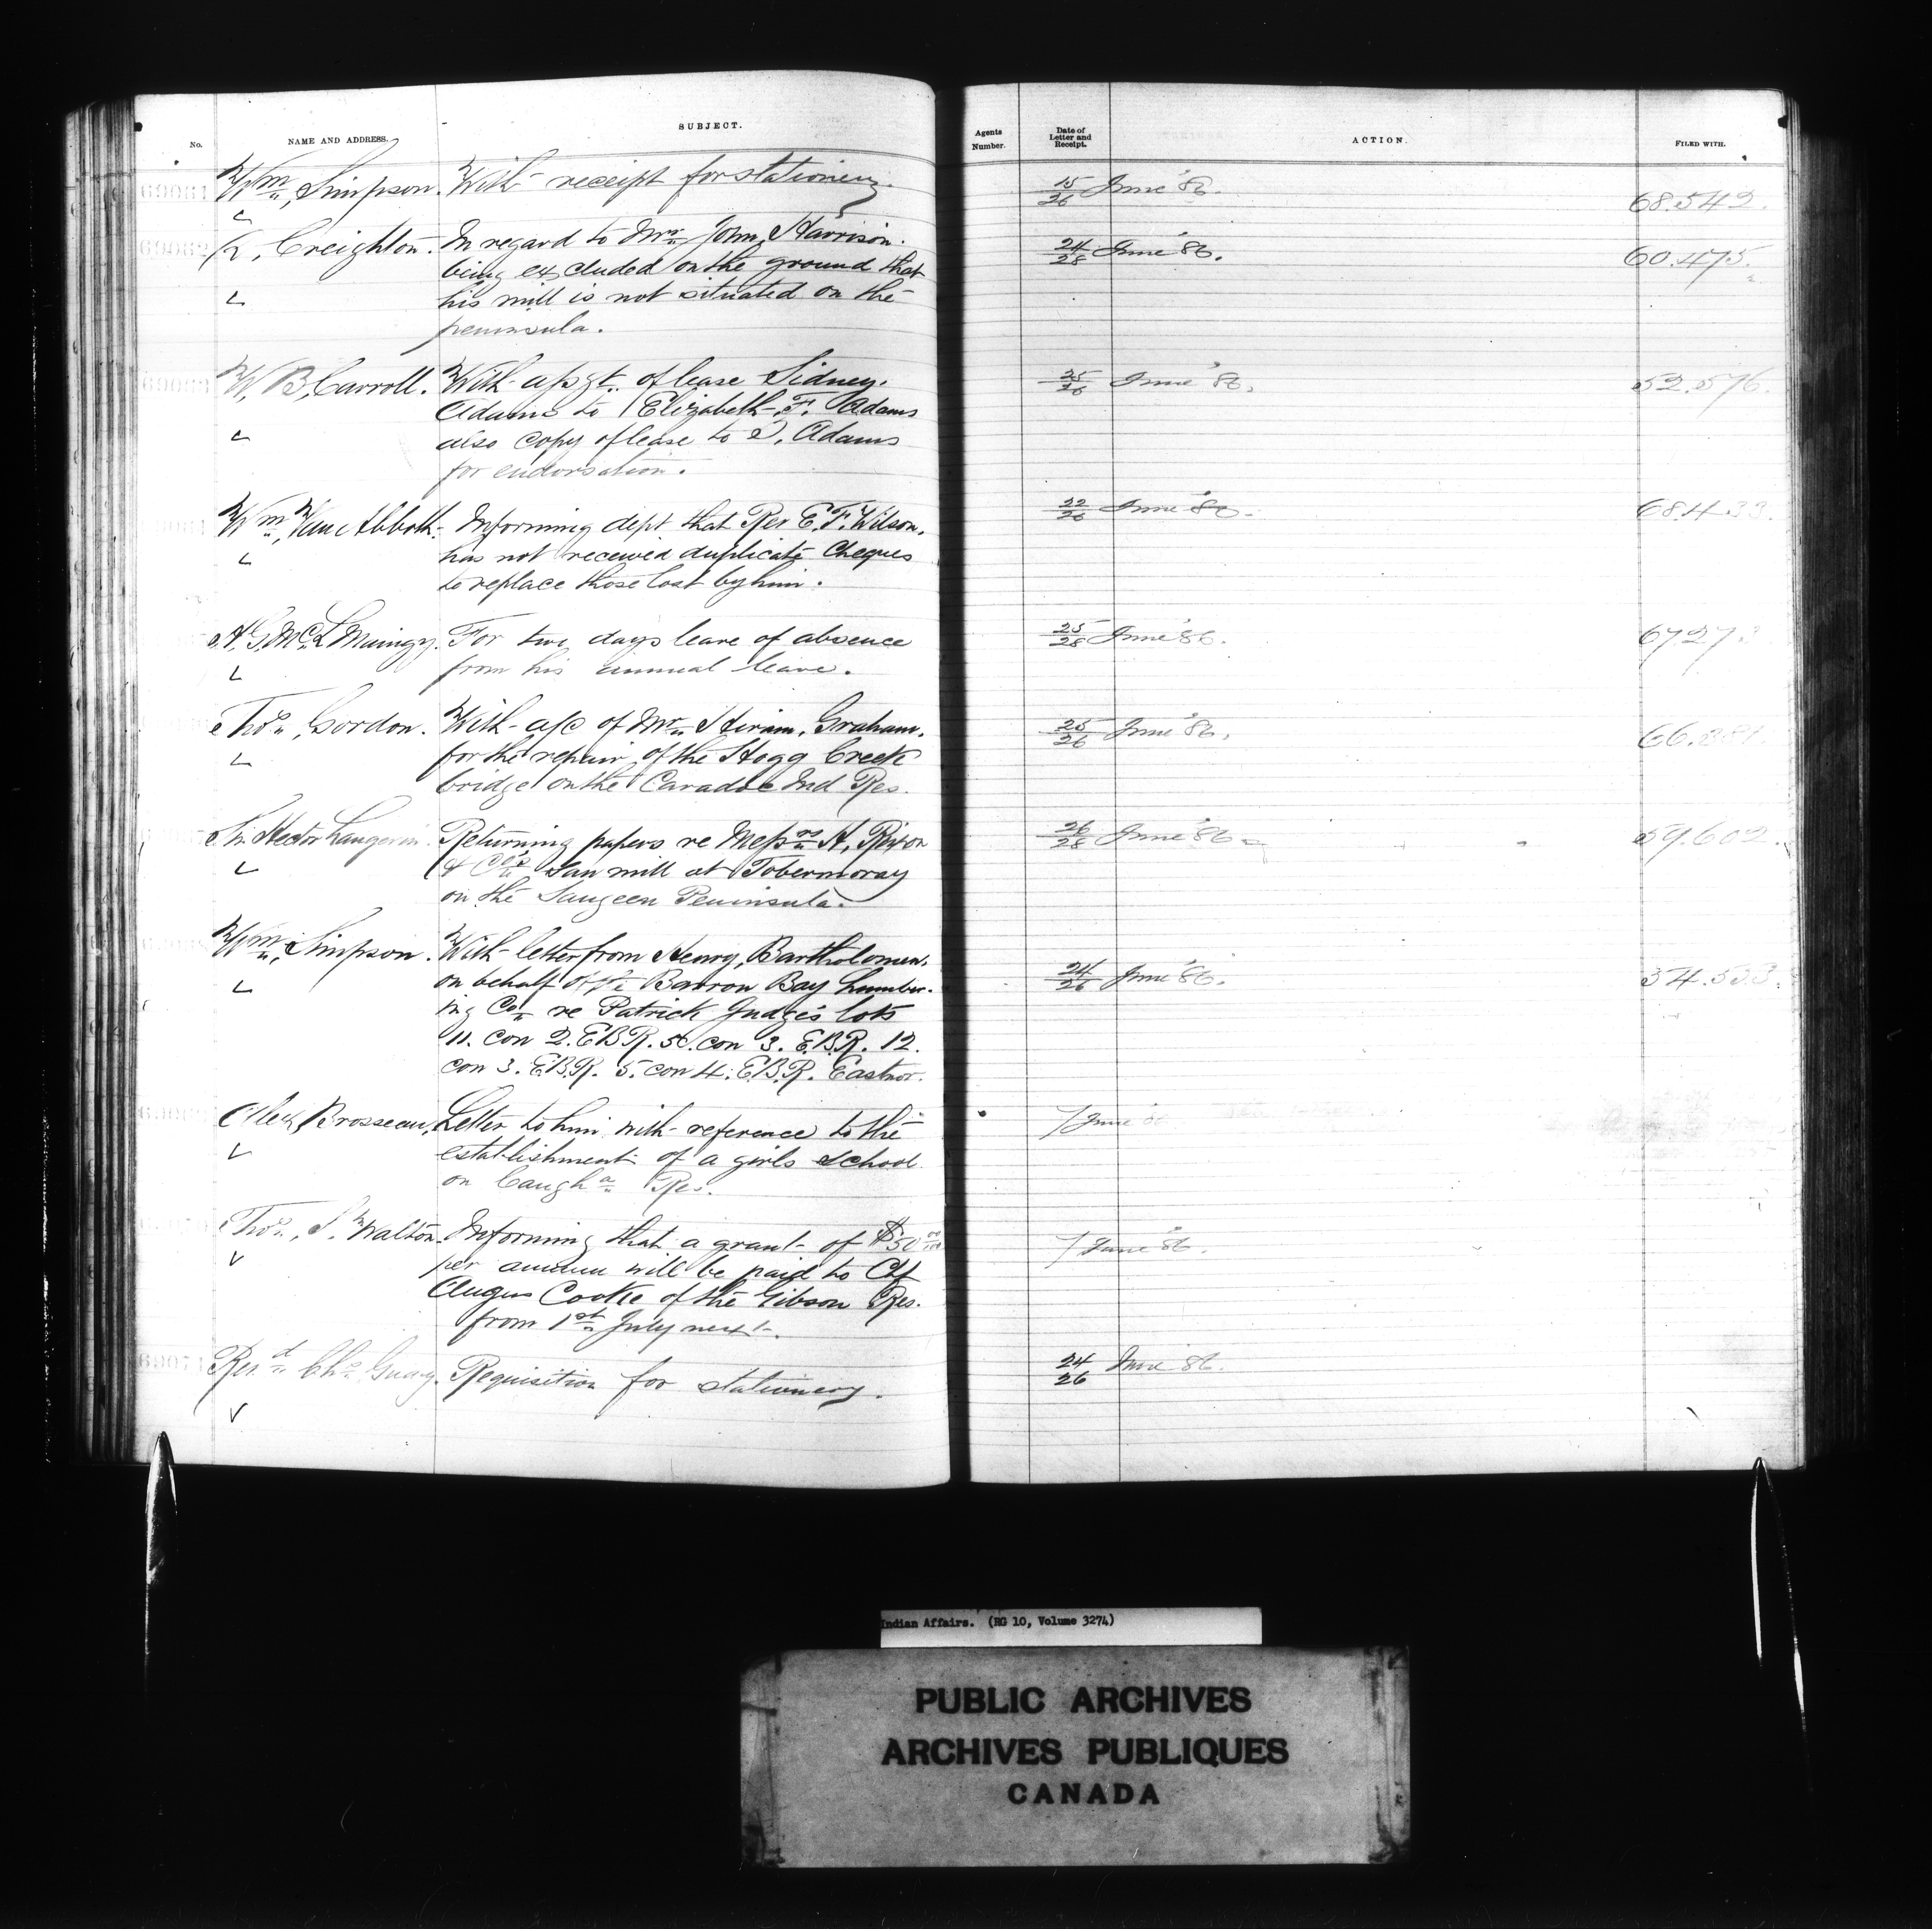 No. NAME AND ADDRESS. SUBJECT. Agents Number. Date of Letter and Receipt. ACTION. FILED WITH.
Wm, Simpson. With receipt for stationery. 15/26 June '86. 68.542.
Creighton. In regard to Mr John Harrison. 24/28 June '86. 60.475.
being excluded on the ground that
his mill is not situated on the
peninsula.
W. B. Carroll. With assgt. of lease Sidney. 25/26 June '86. 52.576.
Adams to Elizabeth F. Adams
also copy of lease to S. Adams
for endorsation.
Wm, Van Abbott. Informing dept that Rev E. F. Wilson. 22/26 June '86. 68.433.
has not received duplicate Cheques
to replace those lost by him.
For two days leave of absence 25/28 June '86. 67.273
from his annual leave.
Thos, Gordon. With a/c of Mr Hiram. Graham. 25/26 June '86.
for the repair of the Hogg Creek
bridge on the Caradoc Ind Res.
Sir Hector Langevin. Returning papers re Messrs H. Rixon 26/28 June '86 59.602.
& Co's Saw mill at Tobermoray
on the Saugeen Peninsula.
Wm, Simpson. With letter from Henry, Bartholomew. 24/26 June '86. 34.533.
on behalf of the Barron Bay Lumber-
ing Co re Patrick Judge's lots
11. con 2. EBR. 50. con 3. E.B.R. 12.
con 3. E.B.R. 5. con 4. E.B.R. Eastnor.
Alex, Brosseau. Letter to him with reference to the 7 June 86
establishment of a girls School
on Caugha Res.
Thos, S. Walton. Informing that a grant of $50 00/100 7 June '86.
per annum will be paid to Chf
Angus Cooke of the Gibson Res.
from 1st July next.
Revd Chs Guay. Requisition for stationery. 24/26 June '86.
Indian Affairs. (RG 10, Volume 3274)
PUBLIC ARCHIVES
ARCHIVES PUBLIQUES
CANADA